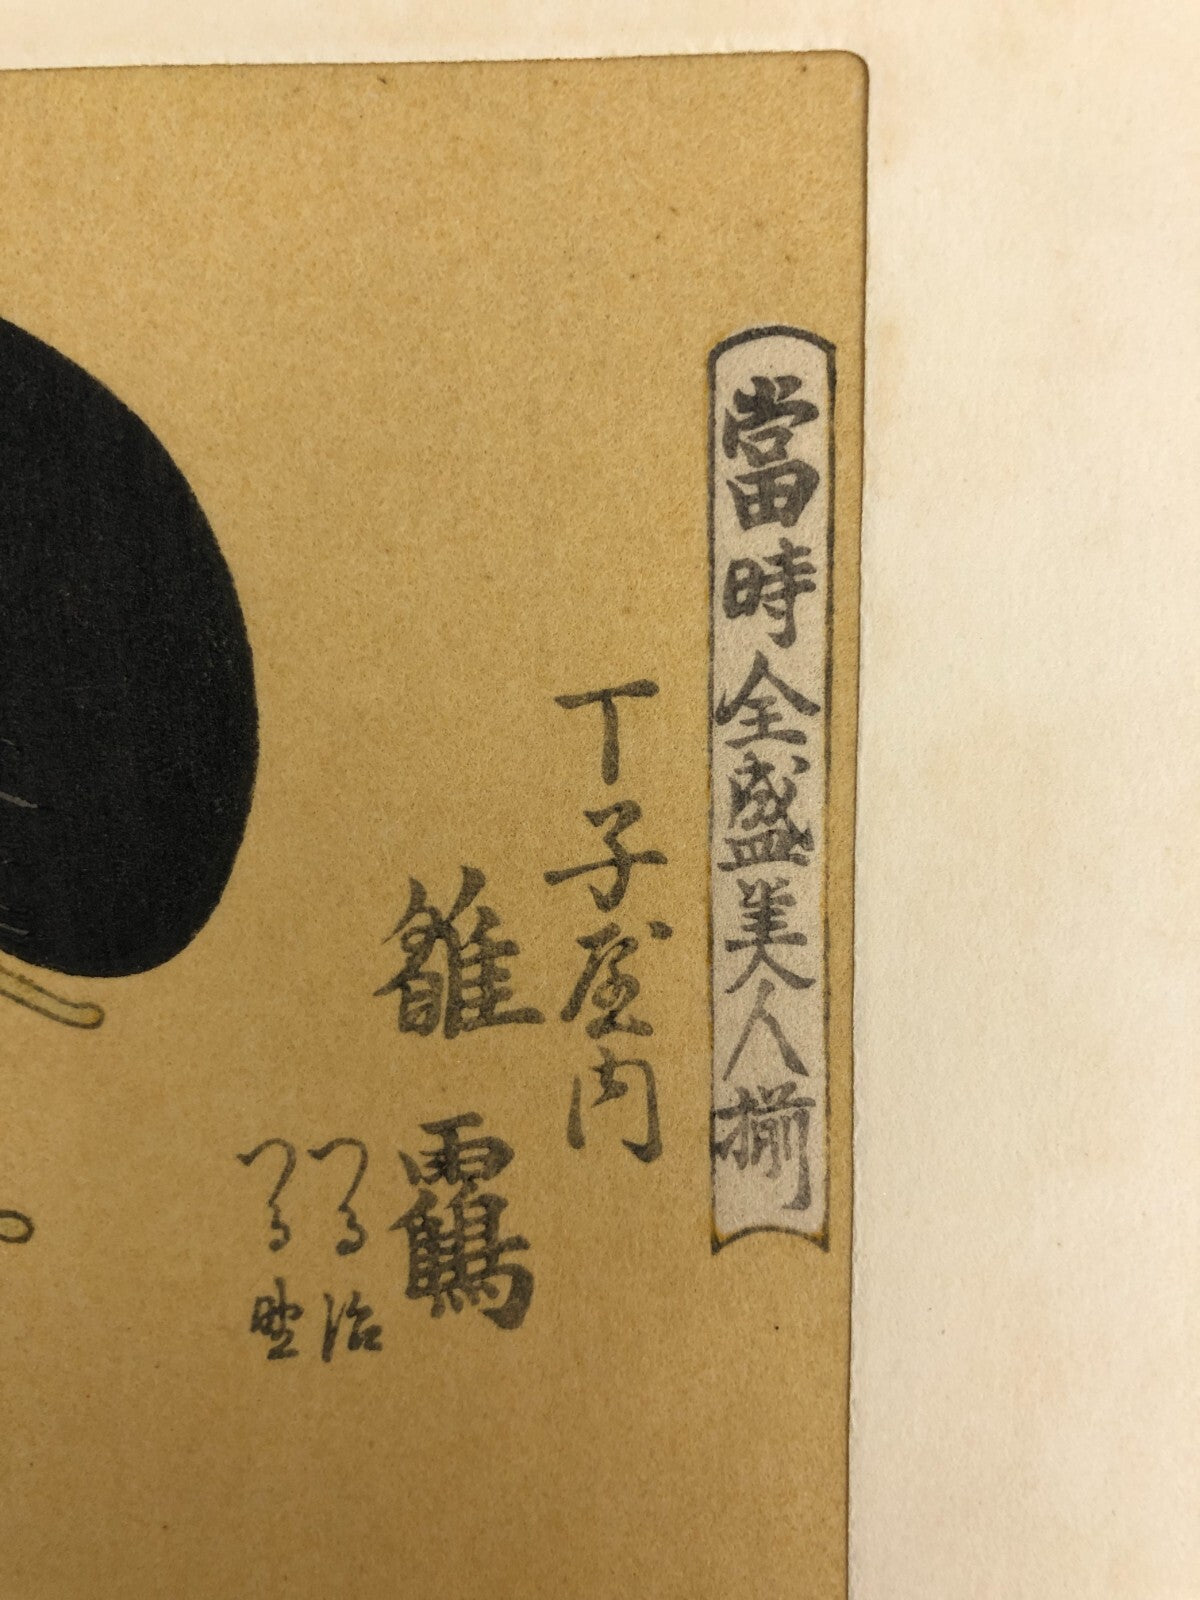 當時全盛美人揃
丁子屋内
雛靏
つる治
つる野